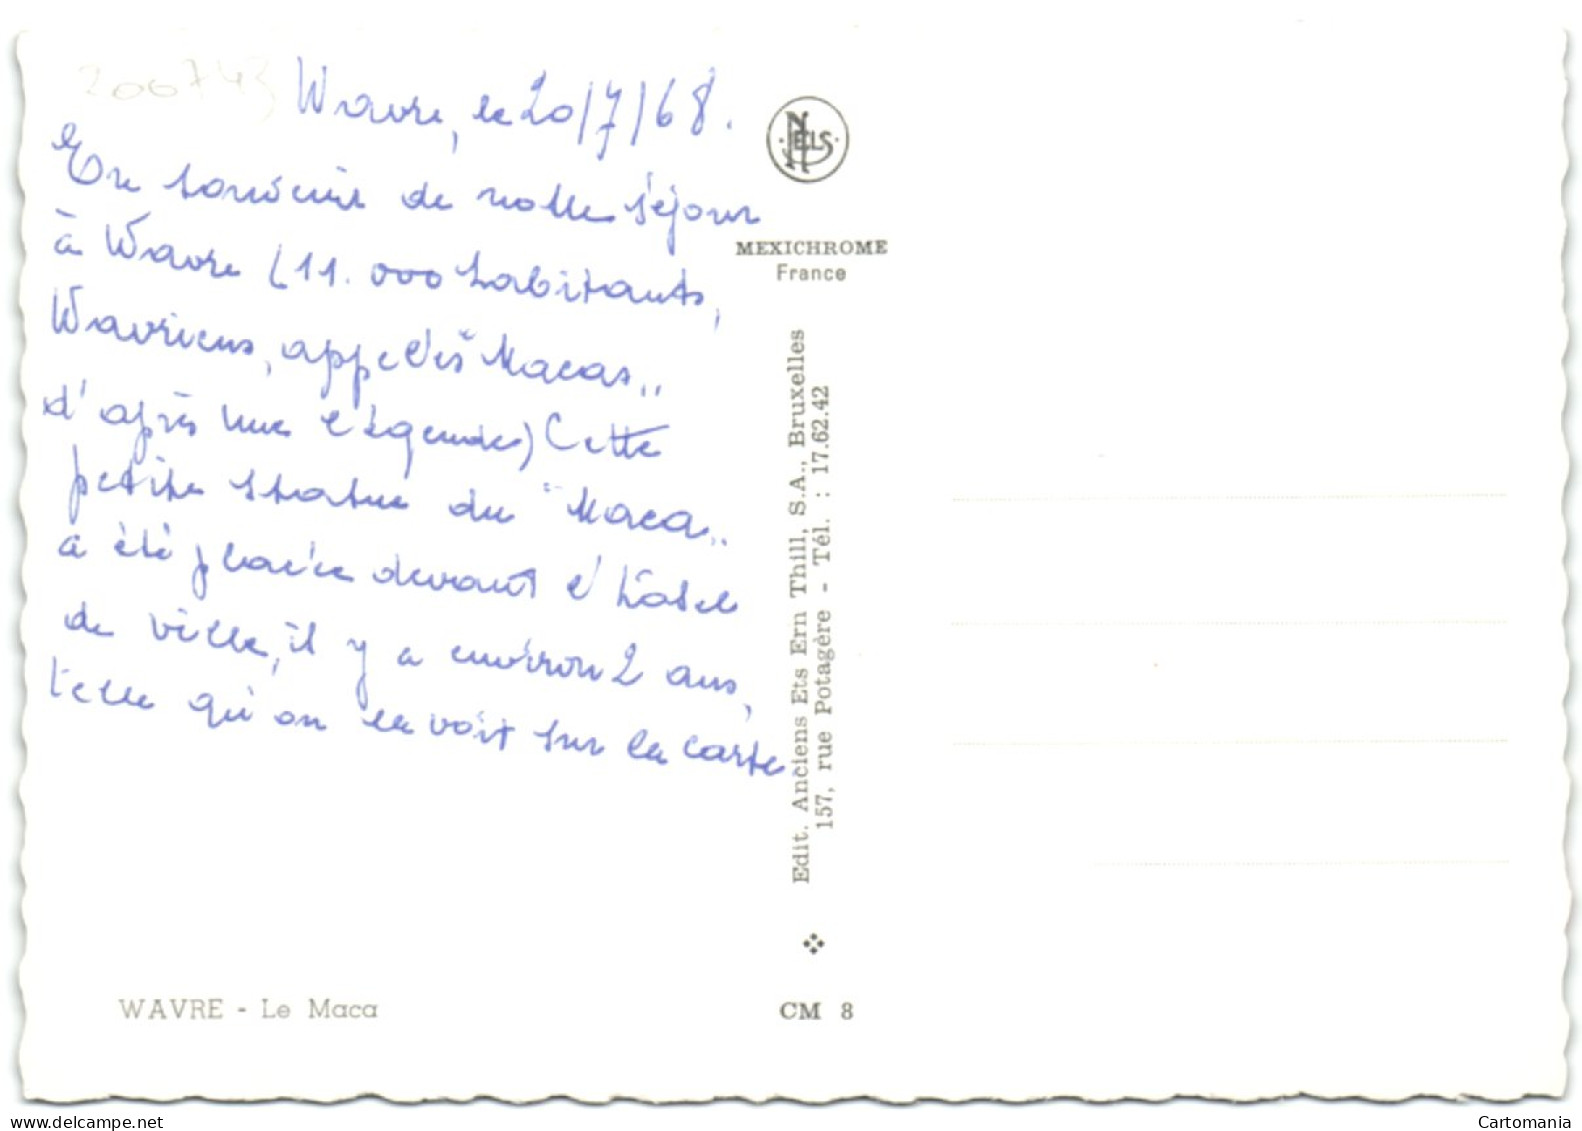 200743
Wavre, le 20/7/68.
En souvenir de notre séjour
à Wavre (11.000 habitants,
Wavriens, appelés "Macas"
d'après une légende) Cette
petite statue du "Maca"
a été placée devant l'hôtel
de ville, il y a environ 2 ans,
telle qu'on la voit sur la carte
NELS
MEXICHROME
France
Edit. Anciens Ets Ern Thill, S.A., Bruxelles
157, rue Potagère - Tél. : 17.62.42
WAVRE - Le Maca
CM 8
www.delcampe.net
Cartomania